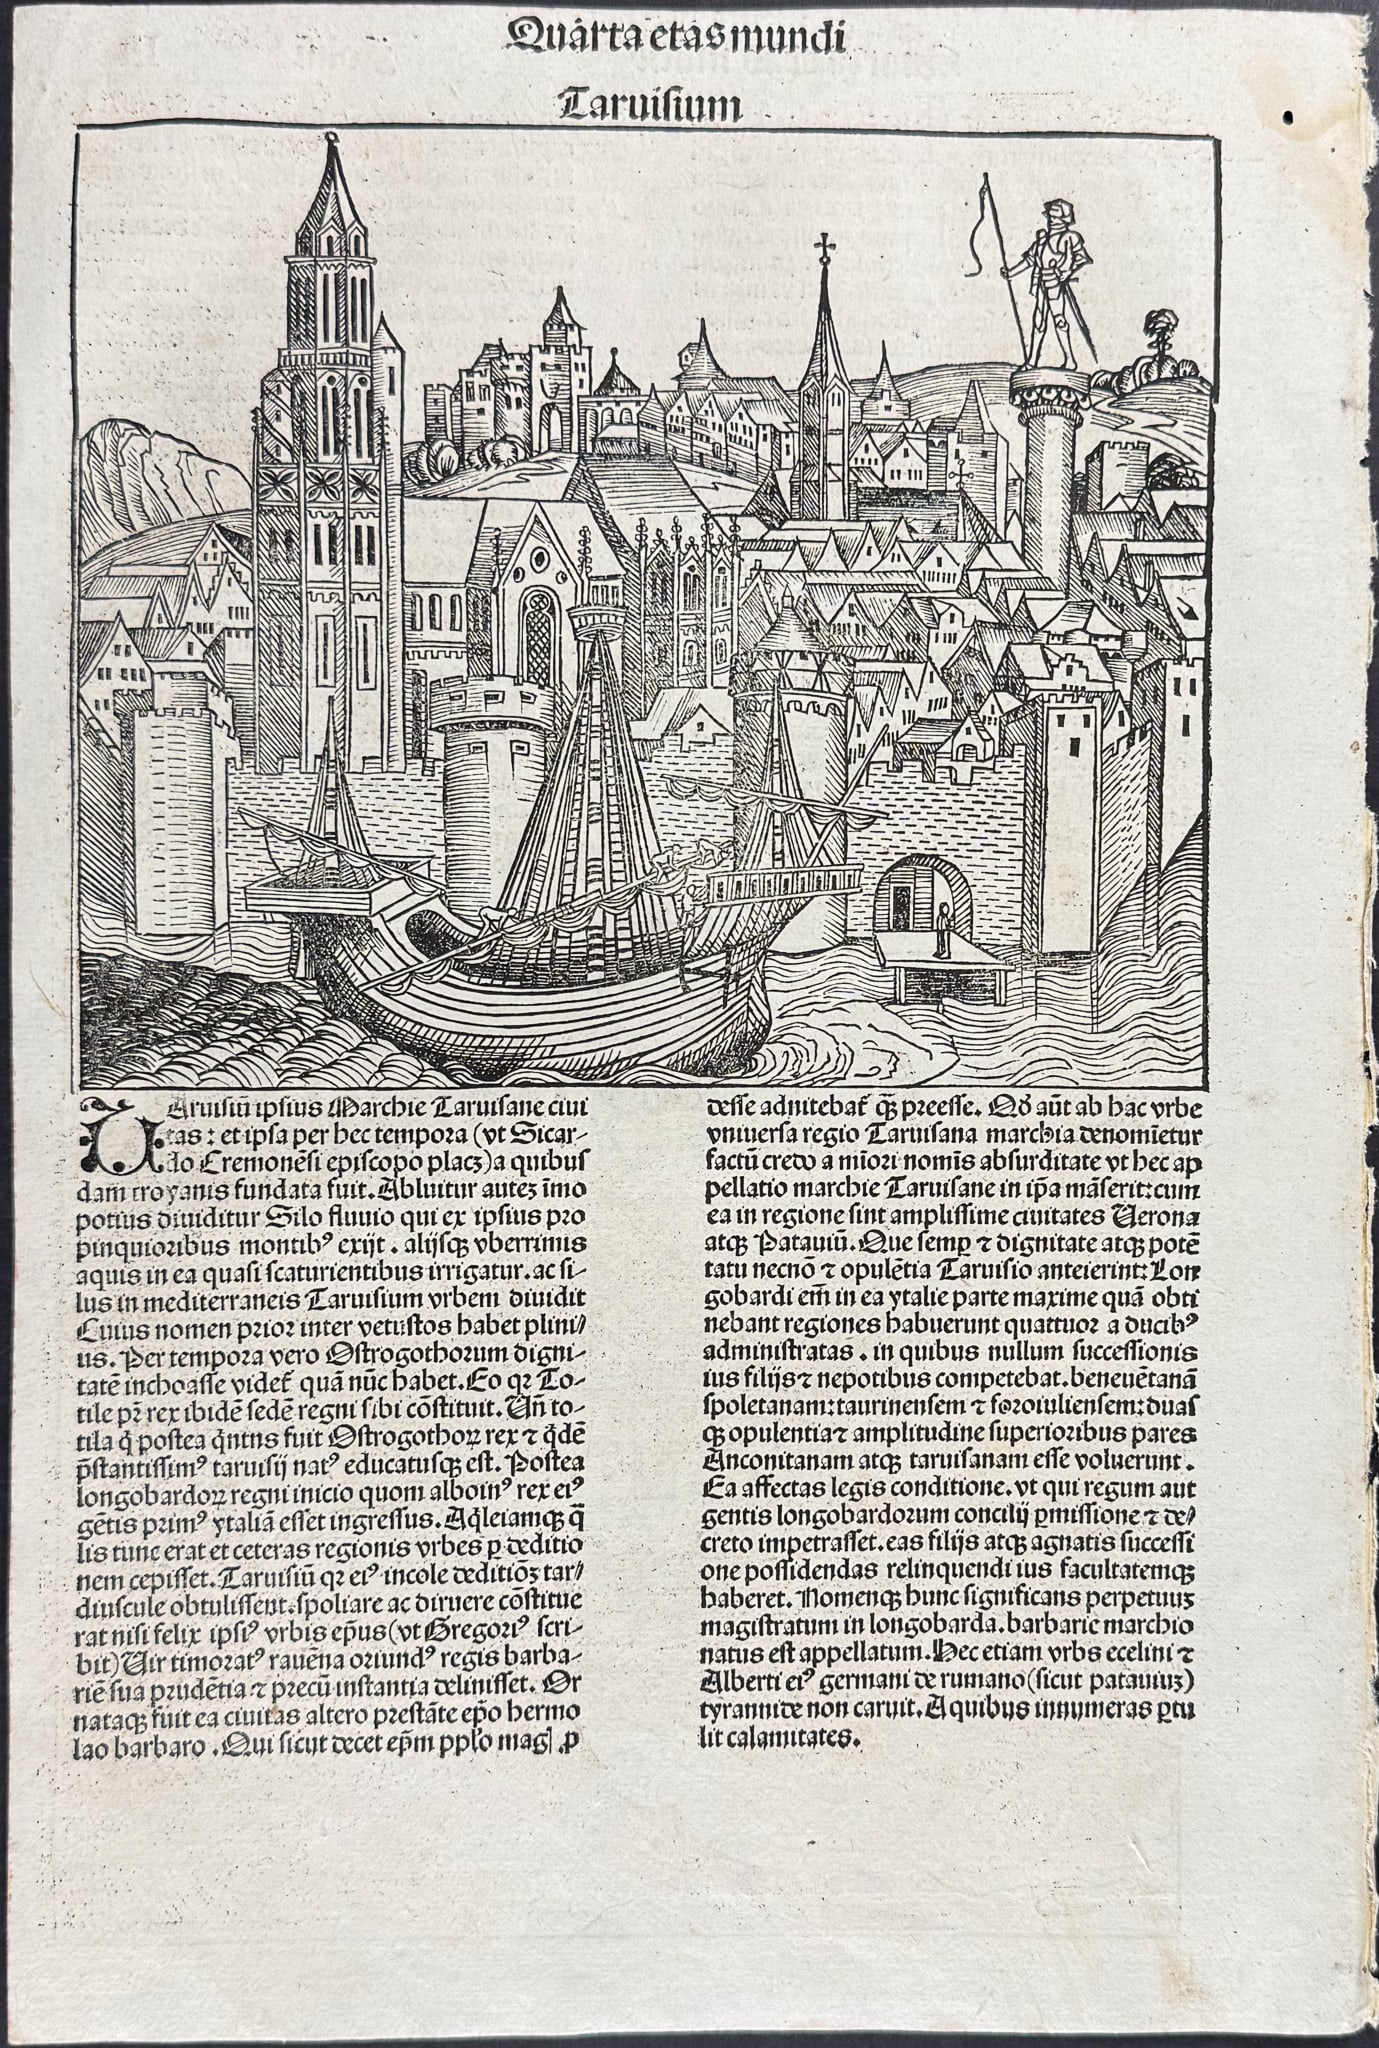 Quarta etas mundi
Taruisium
TAruisiū ipsius Marchie Taruisane ciui
tas: et ipsa per hec tempora (vt Sicar-
do Cremonēsi episcopo placꝫ) a quibus
dam troyanis fundata fuit. Abluitur autez īmo
potius diuiditur Silo fluuio qui ex ipsius pro
pinquioribus montibꝰ exijt. alijsqꝫ vberrimis
aquis in ea quasi scaturientibus irrigatur. ac si-
lus in mediterraneis Taruisium vrbem diuidit
Cuius nomen prior inter vetustos habet plini/
us. Per tempora vero Ostrogothorum digni-
tatē inchoasse videt᷑ quā nūc habet. Eo qꝛ To-
tile pr̄ rex ibidē sedē regni sibi cōstituit. Un̄ to-
tila q̇ postea q̇ntus fuit Ostrogothoꝝ rex ⁊ q̇dē
p̄stantissimꝰ taruisij natꝰ educatusqꝫ est. Postea
longobardoꝝ regni inicio quom alboinꝰ rex eiꝰ
gētis primꝰ ytaliā esset ingressus. Aq̇leiamqꝫ q̄
lis tunc erat et ceteras regionis vrbes ꝑ deditio
nem cepisset. Taruisiū qꝛ eiꝰ incole deditiōꝫ tar/
diuscule obtulissent. spoliare ac diruere cōstitue
rat nisi felix ipsiꝰ vrbis ep̄us (vt Gregoriꝰ scri-
bit) Uir timoratꝰ rauēna oriundꝰ regis barba-
riē sua prudētia ⁊ precū instantia delinisset. Or
nataqꝫ fuit ea ciuitas altero prestāte ep̄o hermo
lao barbaro. Qui sicut decet ep̄m pp̄lo mag᷑ ꝓ
desse adnitebat᷑ q̄ꝫ preesse. Qḋ aūt ab hac vrbe
vniuersa regio Taruisana marchia denomīetur
factū credo a mīori nomīs absurditate vt hec ap
pellatio marchie Taruisane in ip̄a māserit: cum
ea in regione sint amplissime ciuitates Uerona
atqꝫ Patauiū. Que semꝑ ⁊ dignitate atqꝫ potē
tatu necnō ⁊ opulētia Taruisio anteierint: Lon
gobardi em̄ in ea ytalie parte maxime quā obti
nebant regiones habuerunt quattuor a ducibꝰ
administratas. in quibus nullum successionis
ius filijs ⁊ nepotibus competebat. beneuētanā
spoletanam: taurinensem ⁊ foroiuliensem: duas
qꝫ opulentia ⁊ amplitudine superioribus pares
Anconitanam atqꝫ taruisanam esse voluerunt.
Ea affectas legis conditione. vt qui regum aut
gentis longobardorum concilij ꝑmissione ⁊ de/
creto impetrasset. eas filijs atqꝫ agnatis successi
one possidendas relinquendi ius facultatemqꝫ
haberet. Nomenqꝫ hunc significans perpetuuꝫ
magistratum in longobarda. barbarie marchio
natus est appellatum. Hec etiam vrbs ecelini ⁊
Alberti eiꝰ germani de rumano (sicut patauiuꝫ)
tyrannide non caruit. A quibus innumeras ꝑtu
lit calamitates.